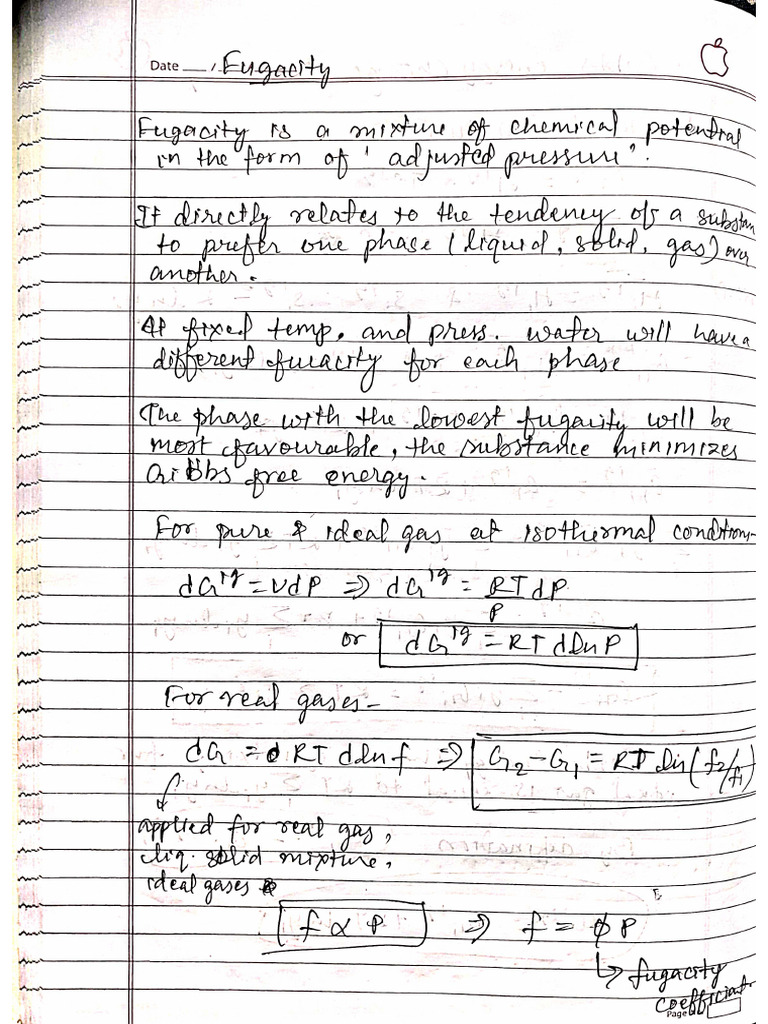 Date ___ / Fugacity
Fugacity is a mixture of chemical potential
in the form of ' adjusted pressure".
It directly relates to the tendency of a substan
to prefer one phase (liquid, solid, gas) over
another.
At fixed temp. and press. water will have a
different fucacity for each phase
The phase with the lowest fugacity will be
most favourable, the substance minimizes
Gibbs free energy.
For pure & ideal gas at isothermal condition-
dG^ig = VdP ⇒ dG^ig = RT/P dP
or dG^ig = RT dlnP
For real gases-
dG = RT dlnf ⇒ G₂-G₁ = RT ln(f₂/f₁)
applied for real gas,
liq. solid mixture,
ideal gases
f ∝ P ⇒ f = ϕ P
↳ fugacity
coefficient
Page